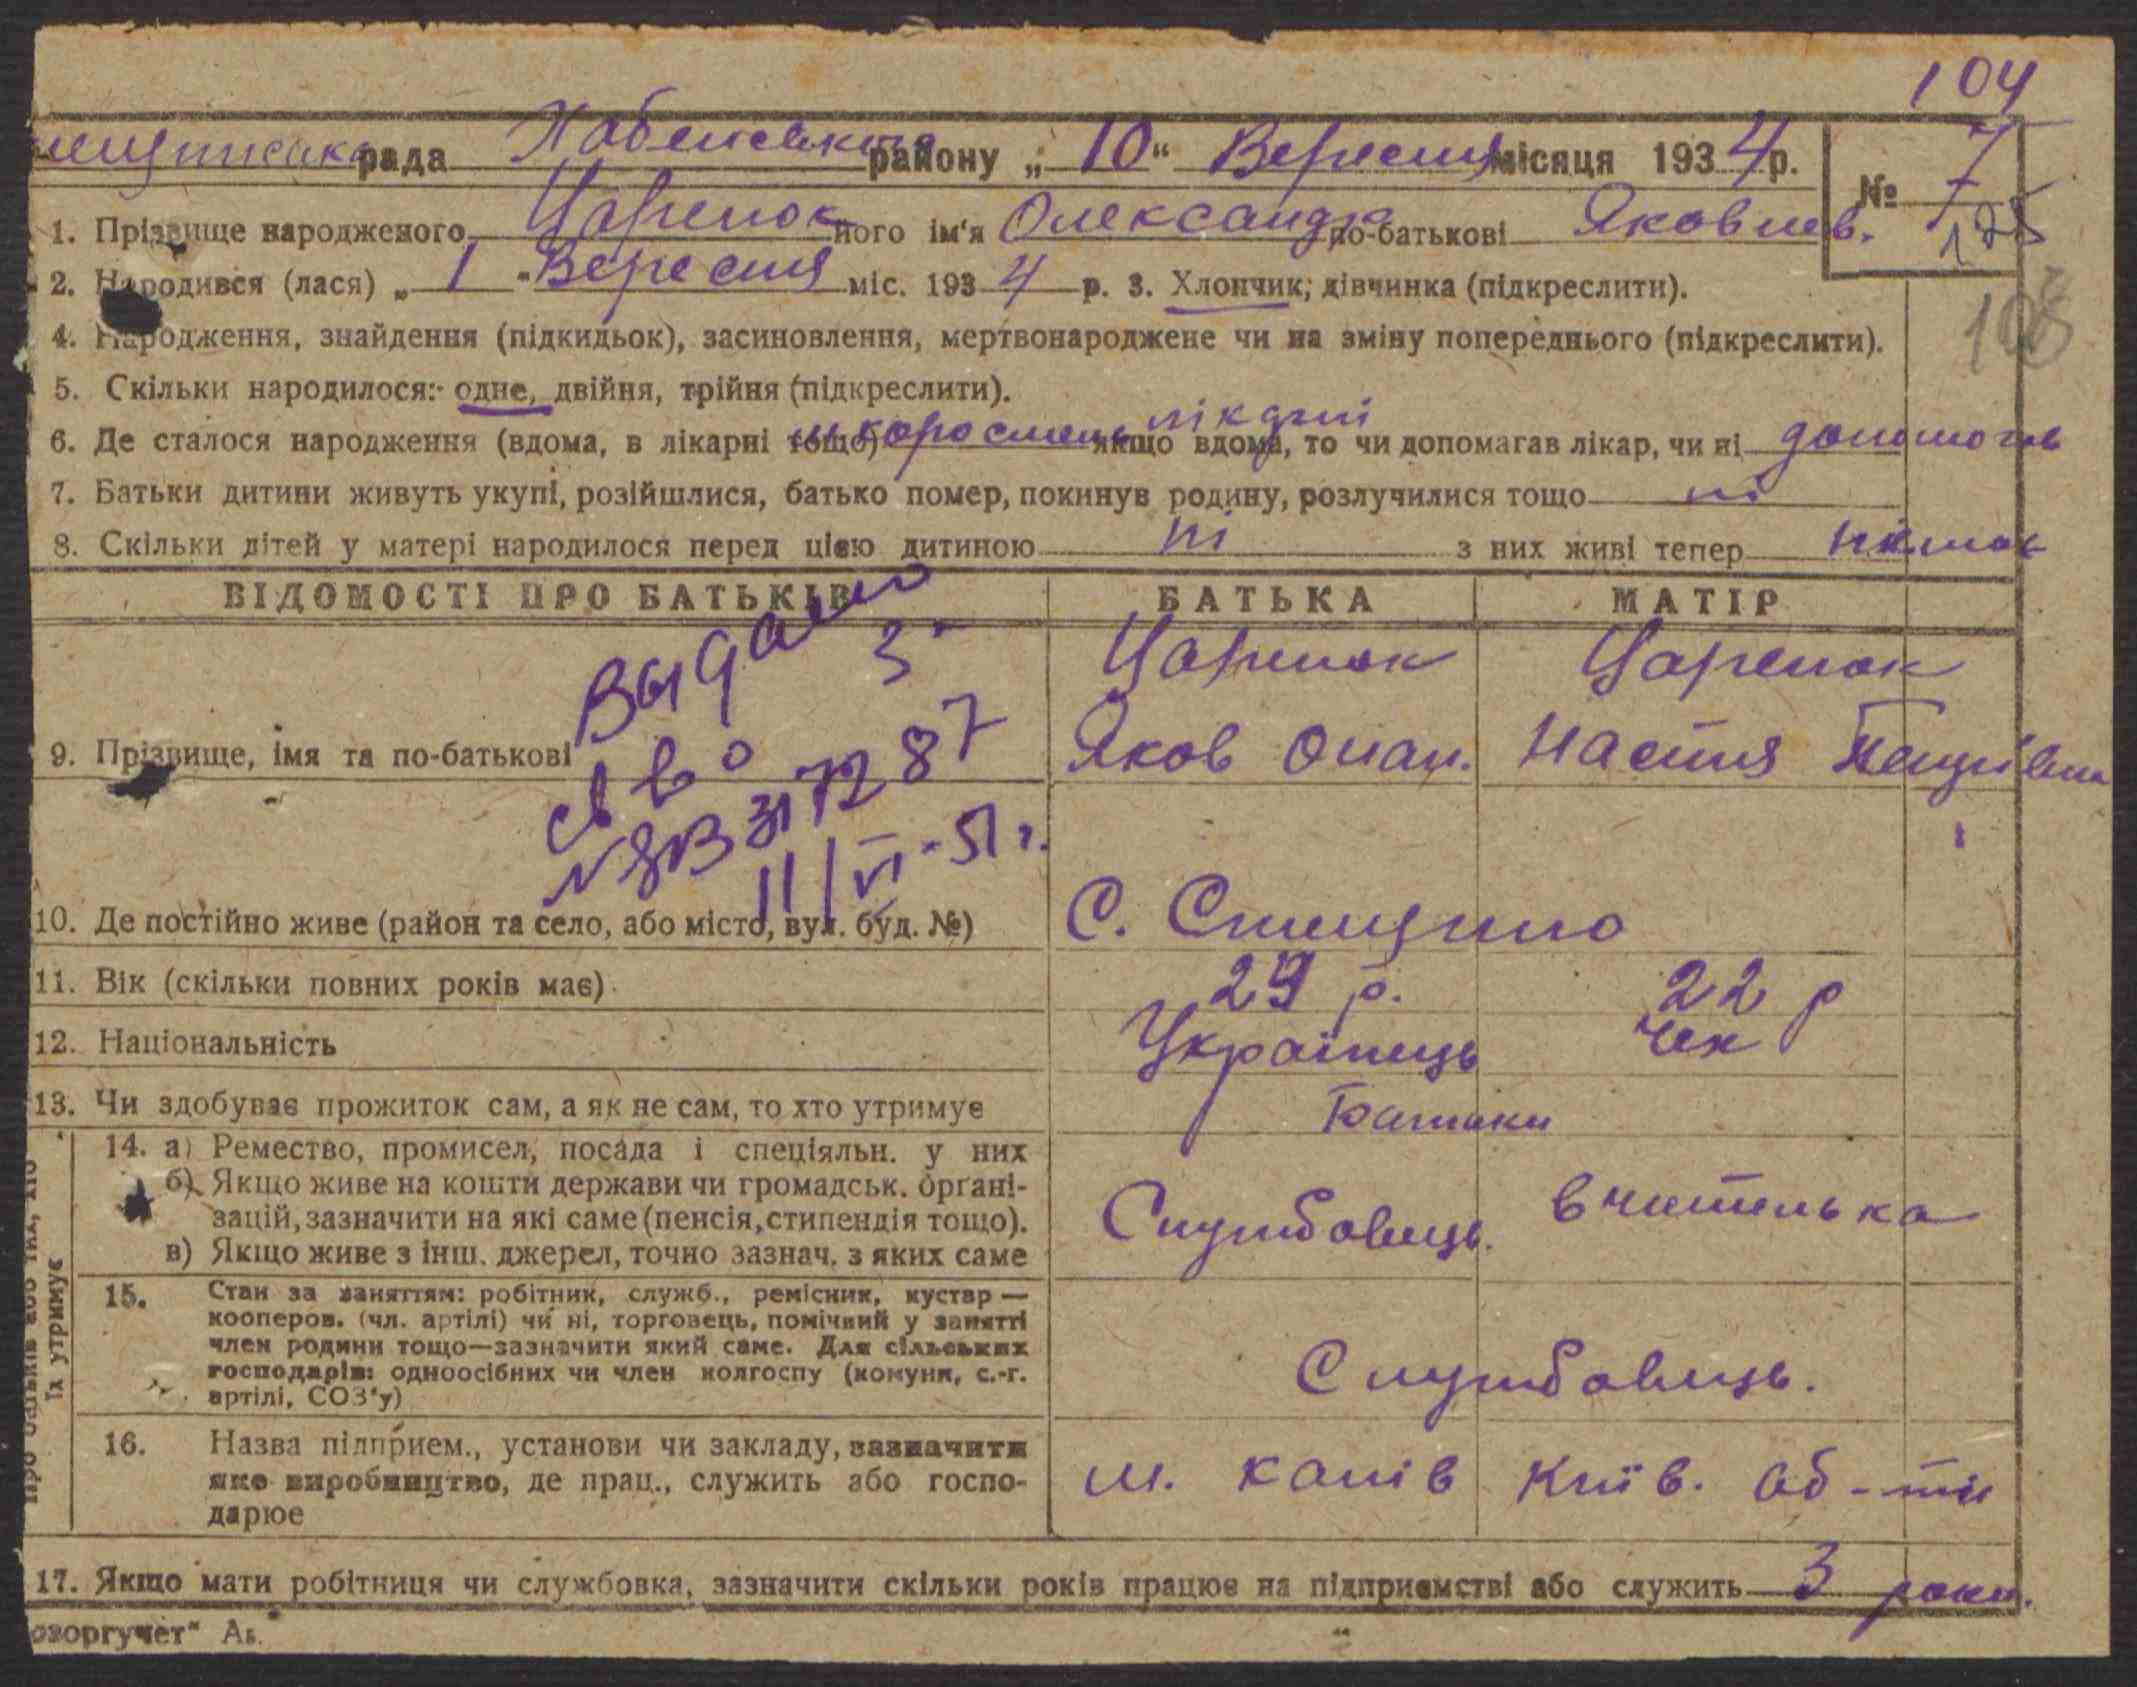 104
рада району „ 10 “ Вересня місяця 1934 р.
№ 7
1. Прізвище народженого Царенок його ім'я Олександр по-батькові Яковлев.
2. Народився (лася) „ 1 " Вересня міс. 1934 р. 3. Хлопчик, дівчинка (підкреслити).
4. Народження, знайдення (підкидьок), засиновлення, мертвонароджене чи на зміну попереднього (підкреслити).
5. Скільки народилося: одне, двійня, трійня (підкреслити).
6. Де сталося народження (вдома, в лікарні тощо) якщо вдома, то чи допомагав лікар, чи ні допомогав
7. Батьки дитини живуть укупі, розійшлися, батько помер, покинув родину, розлучилися тощо ні
8. Скільки дітей у матері народилося перед цією дитиною ні з них живі тепер немає
ВІДОМОСТІ ПРО БАТЬКІВ БАТЬКА МАТІР
Царенок Царенок
9. Прізвище, імя та по-батькові Яков Опан. Настя
Выдано
св во
11/VI-51 г.
10. Де постійно живе (район та село, або місто, вул. буд. №) С.
11. Вік (скільки повних років має) 29 р. 22 р
12. Національність Українець Чех
13. Чи здобуває прожиток сам, а як не сам, то хто утримує Батьки
їх утримує
14. а) Ремество, промисел, посада і спеціяльн. у них
б) Якщо живе на кошти держави чи громадськ. органі-
зацій, зазначити на які саме (пенсія, стипендія тощо).
в) Якщо живе з інш. джерел, точно зазнач. з яких саме
Службовець. вчителька
15. Стан за заняттям: робітник, служб., ремісник, кустар —
кооперов. (чл. артілі) чи ні, торговець, помічний у занятті
член родини тощо—зазначити який саме. Для сільських
господарів: одноосібних чи член колгоспу (комуни, с.-г.
артілі, СОЗ'у)
Службовець.
16. Назва підприєм., установи чи закладу, зазначити
яке виробництво, де прац., служить або госпо-
дарює
м. Канів Київ. об-ти
17. Якщо мати робітниця чи службовка, зазначити скільки років працює на підприємстві або служить 3 роки.
озоргучет"